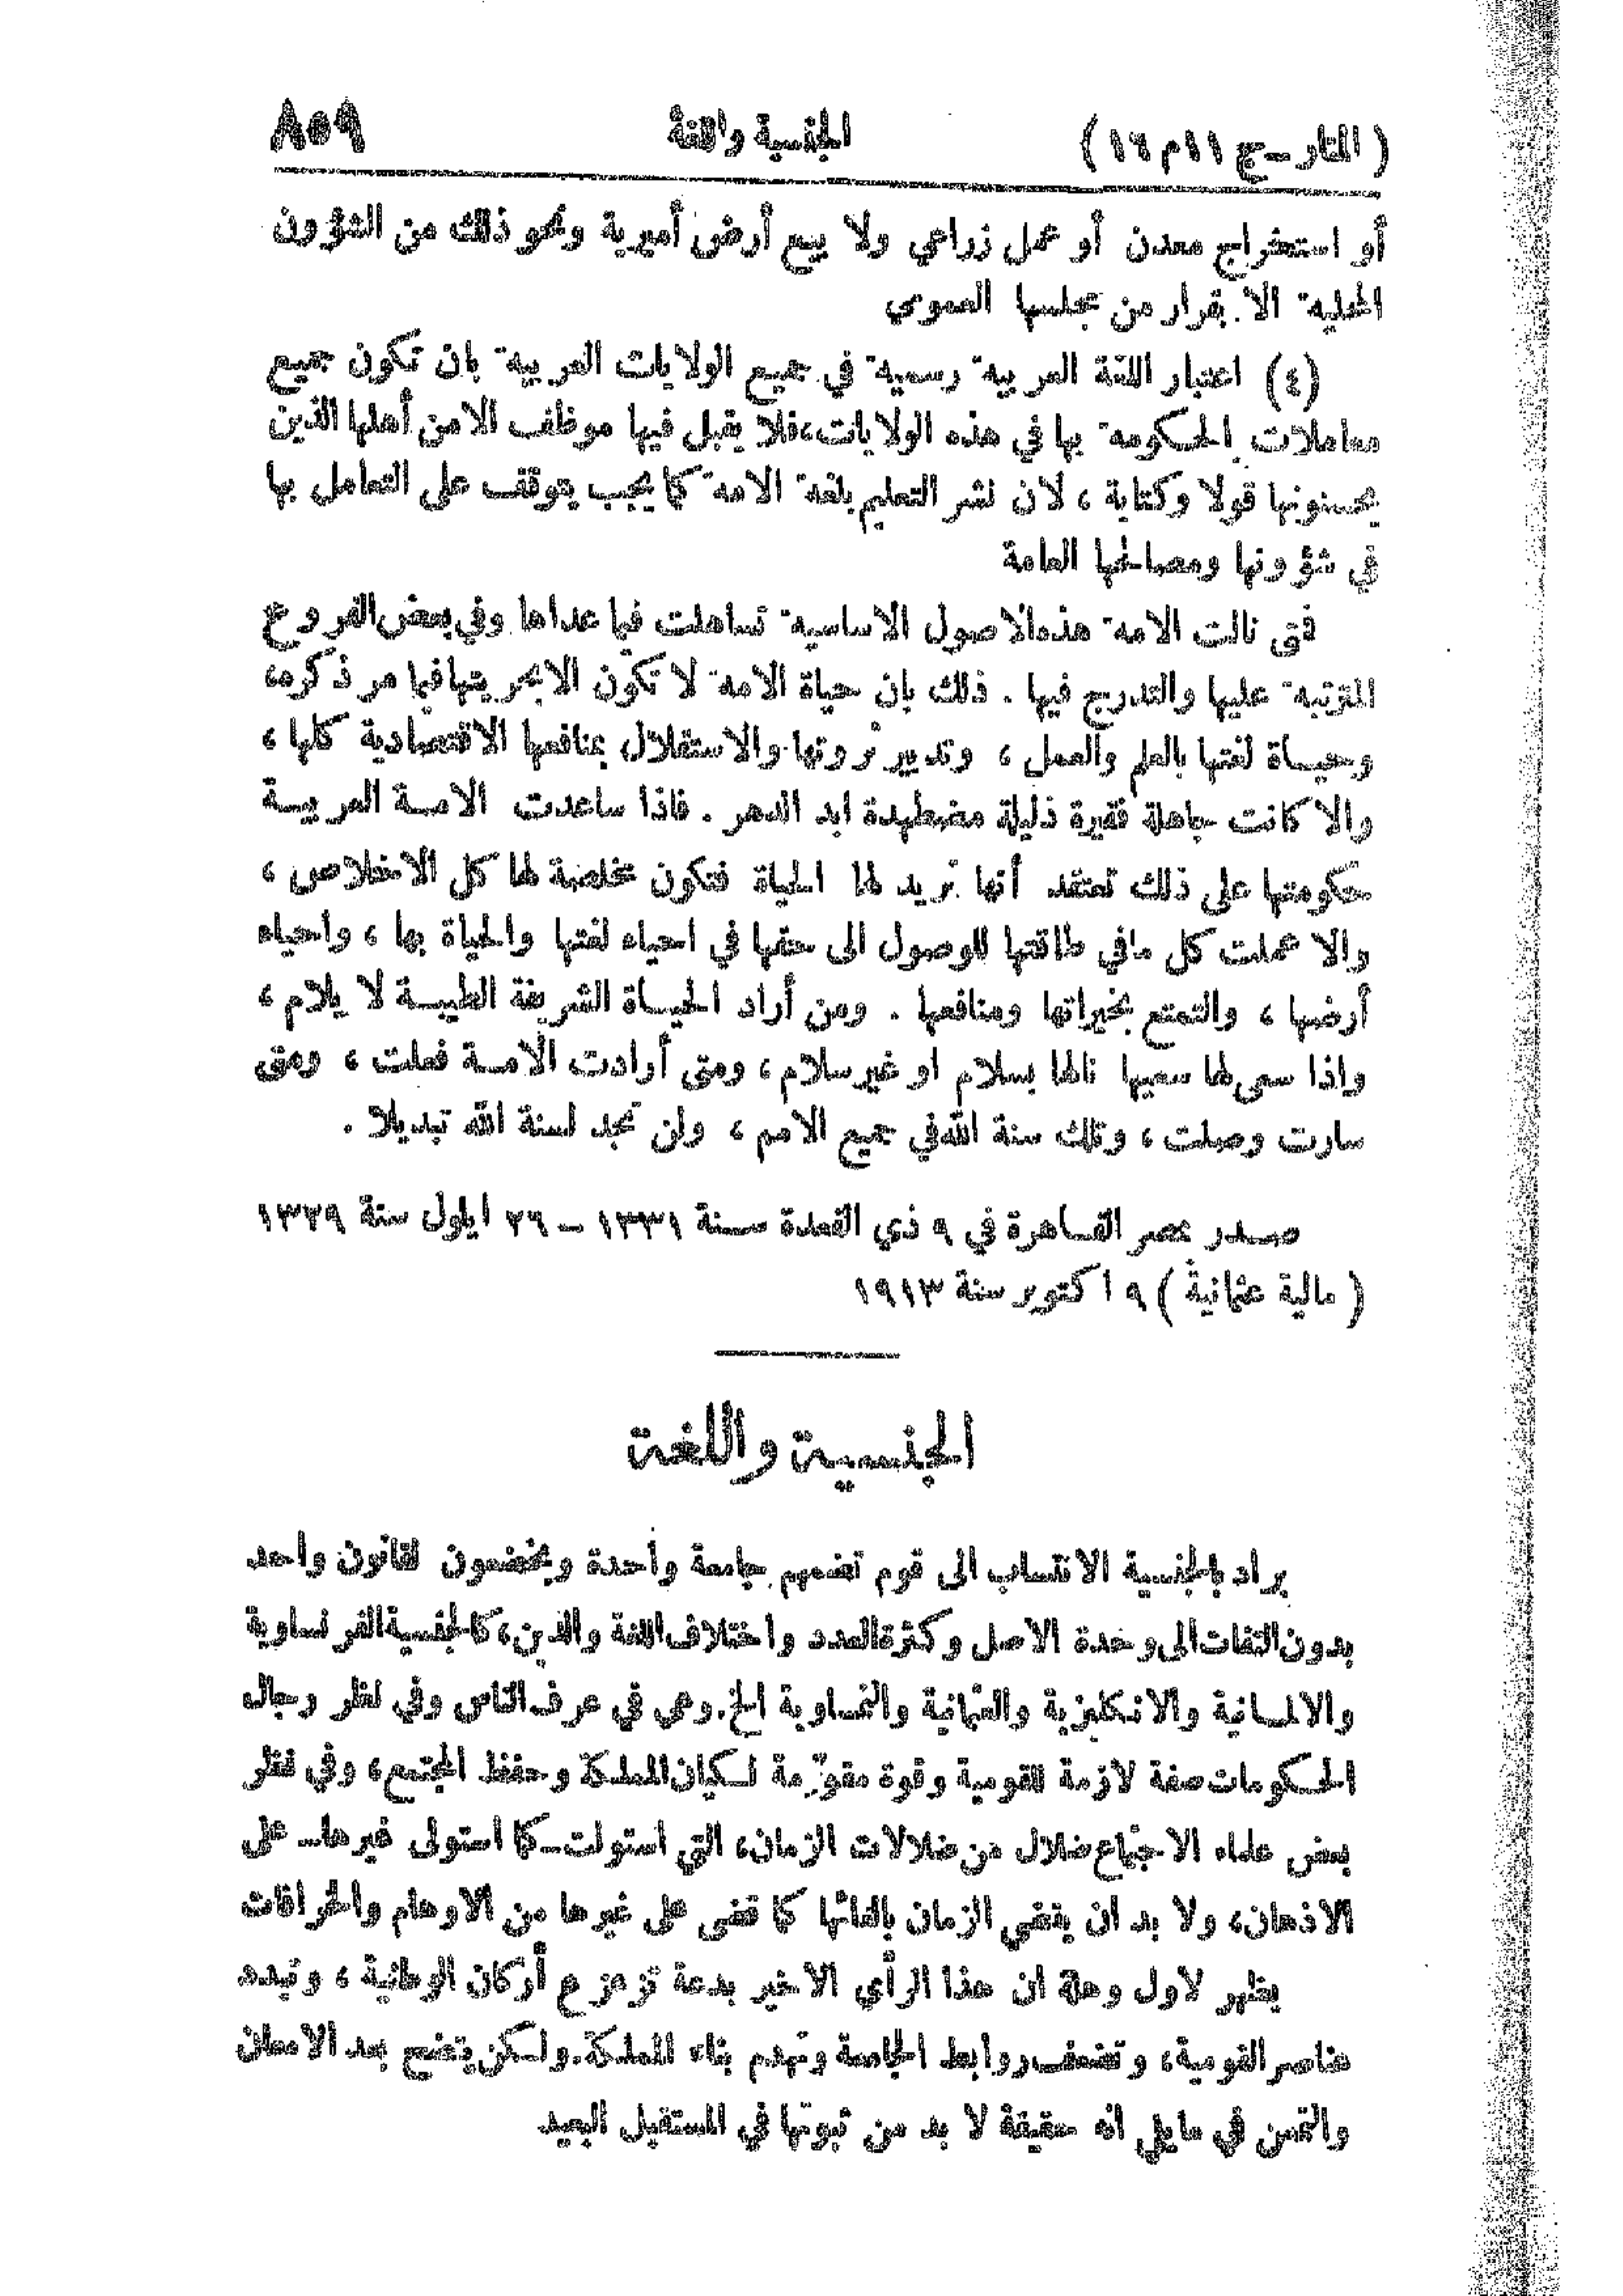 (المنار ـ ج ١١ م ١٦) الجنسية واللغة ٨٥٩
أو استخراج معدن أو عمل زراعي ولا ببيع أرض أميرية ونحو ذلك من الشؤون
المحلية الا بقرار من مجلسها العمومي
(٤) اعتبار اللغة العربية رسمية في جميع الولايات العربية بان تكون جميع
معاملات الحكومة بها في هذه الولايات، فلا يقبل فيها موظف الا من أهلها الذين
يحسنونها قولا وكتابة ، لان نشر التعليم بلغة الامة كما يجب يتوقف على التعامل بها
في شؤونها ومصالحها العامة
فمتى نالت الامة هذه الاصول الاساسية تساهلت فيما عداها وفي بعض الفروع
المترتبة عليها والتدرج فيها . ذلك بان حياة الامة لا تكون الا بحريتها فيما مر ذكره،
وحياة لغتها بالعلم والعمل ، وتدبير ثروتها والاستقلال بمنافعها الاقتصادية كلها ،
والا كانت جاهلة فقيرة ذليلة مضطهدة ابد الدهر . فاذا ساعدت الامة العربية
حكومتها على ذلك تعتقد أنها تريد لها الحياة فتكون مخلصة لها كل الاخلاص ،
والا عملت كل ما في طاقتها للوصول الى حقها في احياء لغتها والحياة بها ، واحياء
أرضها ، والتمتع بخيراتها ومنافعها . ومن أراد الحياة الشريفة الطيبة لا يلام ،
واذا سعى لها سعيها نالها بسلام او غير سلام ، ومتى أرادت الامة فعلت ، ومتى
سارت وصلت ، وتلك سنة الله في جميع الامم ، ولن تجد لسنة الله تبديلا .
صدر بمصر القاهرة في ٩ ذي القعدة سنة ١٣٣١ ـ ٢٦ ايلول سنة ١٣٢٩
(مالية عثمانية) ٩ اكتوبر سنة ١٩١٣
الجنسية واللغة
يراد بالجنسية الانتساب الى قوم تضمهم جامعة واحدة ويخضعون لقانون واحد
بدون التفات الى وحدة الاصل وكثرة العدد واختلاف اللغة والدين، كالجنسية الفرنساوية
والالمانية والانكليزية والعثمانية والنمساوية الخ. وهي في عرف الناس وفي نظر رجال
الحكومات صفة لازمة للقومية وقوة مقوّمة لكيان المملكة وحفظ المجتمع، وفي نظر
بعض علماء الاجتماع ضلال من ضلالات الزمان، التي استولت ـ كما استولى غيرها ـ على
الاذهان، ولا بد ان يقضي الزمان بالغائها كما قضى على غيرها من الاوهام والخرافات
يظهر لاول وهلة ان هذا الرأي الاخير بدعة تزعزع أركان الوطنية ، وتبدد
عناصر القومية، وتضعف روابط الجامعة وتهدم بناء المملكة. ولكن يتضح بعد الامعان
والتمعن في ما يلي انه حقيقة لا بد من ثبوتها في المستقبل البعيد